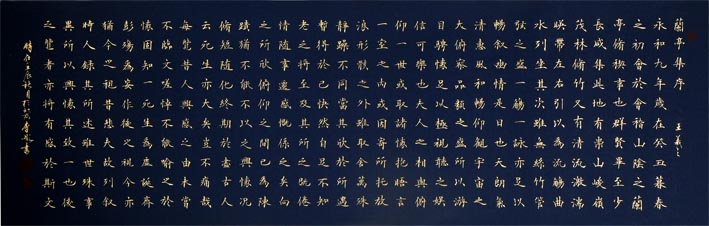 蘭亭集序 王羲之
永和九年歲在癸丑暮春
之初會於會稽山陰之蘭
亭脩禊事也群賢畢至少
長咸集此地有崇山峻嶺
茂林脩竹又有清流激湍
暎帶左右引以為流觴曲
水列坐其次雖無絲竹管
弦之盛一觴一詠亦足以
暢敘幽情是日也天朗氣
清惠風和暢仰觀宇宙之
大俯察品類之盛所以游
目騁懷足以極視聽之娛
信可樂也夫人之相與俯
仰一世或取諸懷抱晤言
一室之內或因寄所托放
浪形骸之外雖取舍萬殊
靜躁不同當其欣於所遇
暫得於己快然自足不知
老之將至及其所之既倦
情隨事遷感慨係之矣向
之所欣俯仰之間已為陳
蹟猶不能不以之興懷況
脩短隨化終期於盡古人
云死生亦大矣豈不痛哉
每覽昔人興感之由未嘗
不臨文嗟悼不能喻之於
懷固知一死生為虛誕齊
彭殤為妄作後之視今亦
猶今之視昔悲夫故列敘
時人錄其所述雖世殊事
異所以興懷其致一也後
之覽者亦將有感於斯文